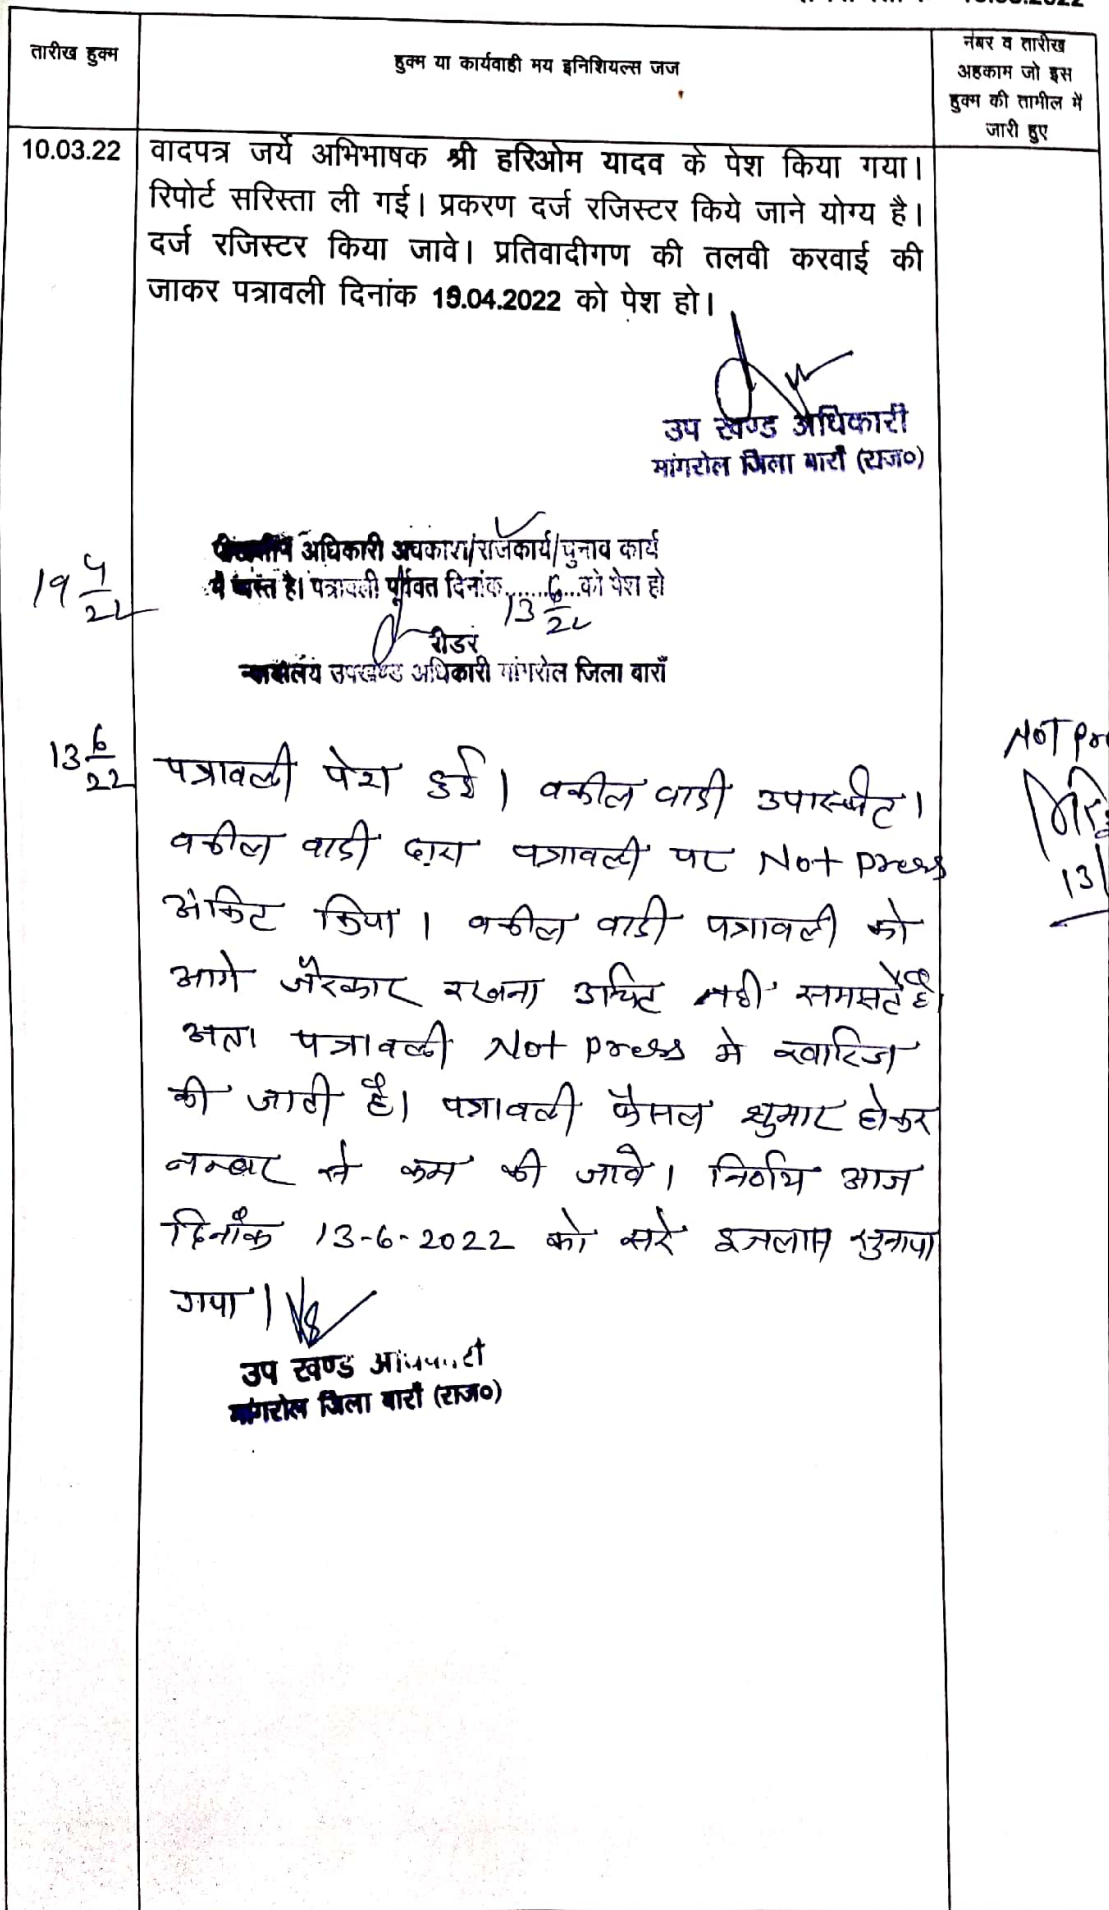 तारीख हुक्म
हुक्म या कार्यवाही मय इनिशियल्स जज
नंबर व तारीख
अहकाम जो इस
हुक्म की तामील में
जारी हुए
10.03.22
वादपत्र जर्ये अभिभाषक श्री हरिओम यादव के पेश किया गया।
रिपोर्ट सरिस्ता ली गई। प्रकरण दर्ज रजिस्टर किये जाने योग्य है।
दर्ज रजिस्टर किया जावे। प्रतिवादीगण की तलवी करवाई की
जाकर पत्रावली दिनांक 19.04.2022 को पेश हो।
उप खण्ड अधिकारी
मांगरोल जिला बारॉं (राज०)
19 4/22
अधिकारी अवकाश/राजकार्य/चुनाव कार्य
में व्यस्त है। पत्रावली पूर्ववत दिनांक 13 6/22 को पेश हो
रीडर
न्यायालय उपखण्ड अधिकारी मांगरोल जिला बारॉं
13 6/22
पत्रावली पेश हुई। वकील वादी उपास्थीत।
वकील वादी द्वारा पत्रावली पर Not press
अंकित किया। वकील वादी पत्रावली को
आगे जैरकार रखना उचित नही समझते है।
अतः पत्रावली Not press मे खारिज
की जाती है। पत्रावली फैसल शुमार होकर
नम्बर से कम की जावे। निर्णय आज
दिनाँक 13-6-2022 को सरे इजलास सुनाया
गया।
NOT Pr
13/
उप खण्ड अधिकारी
मांगरोल जिला बारॉं (राज०)